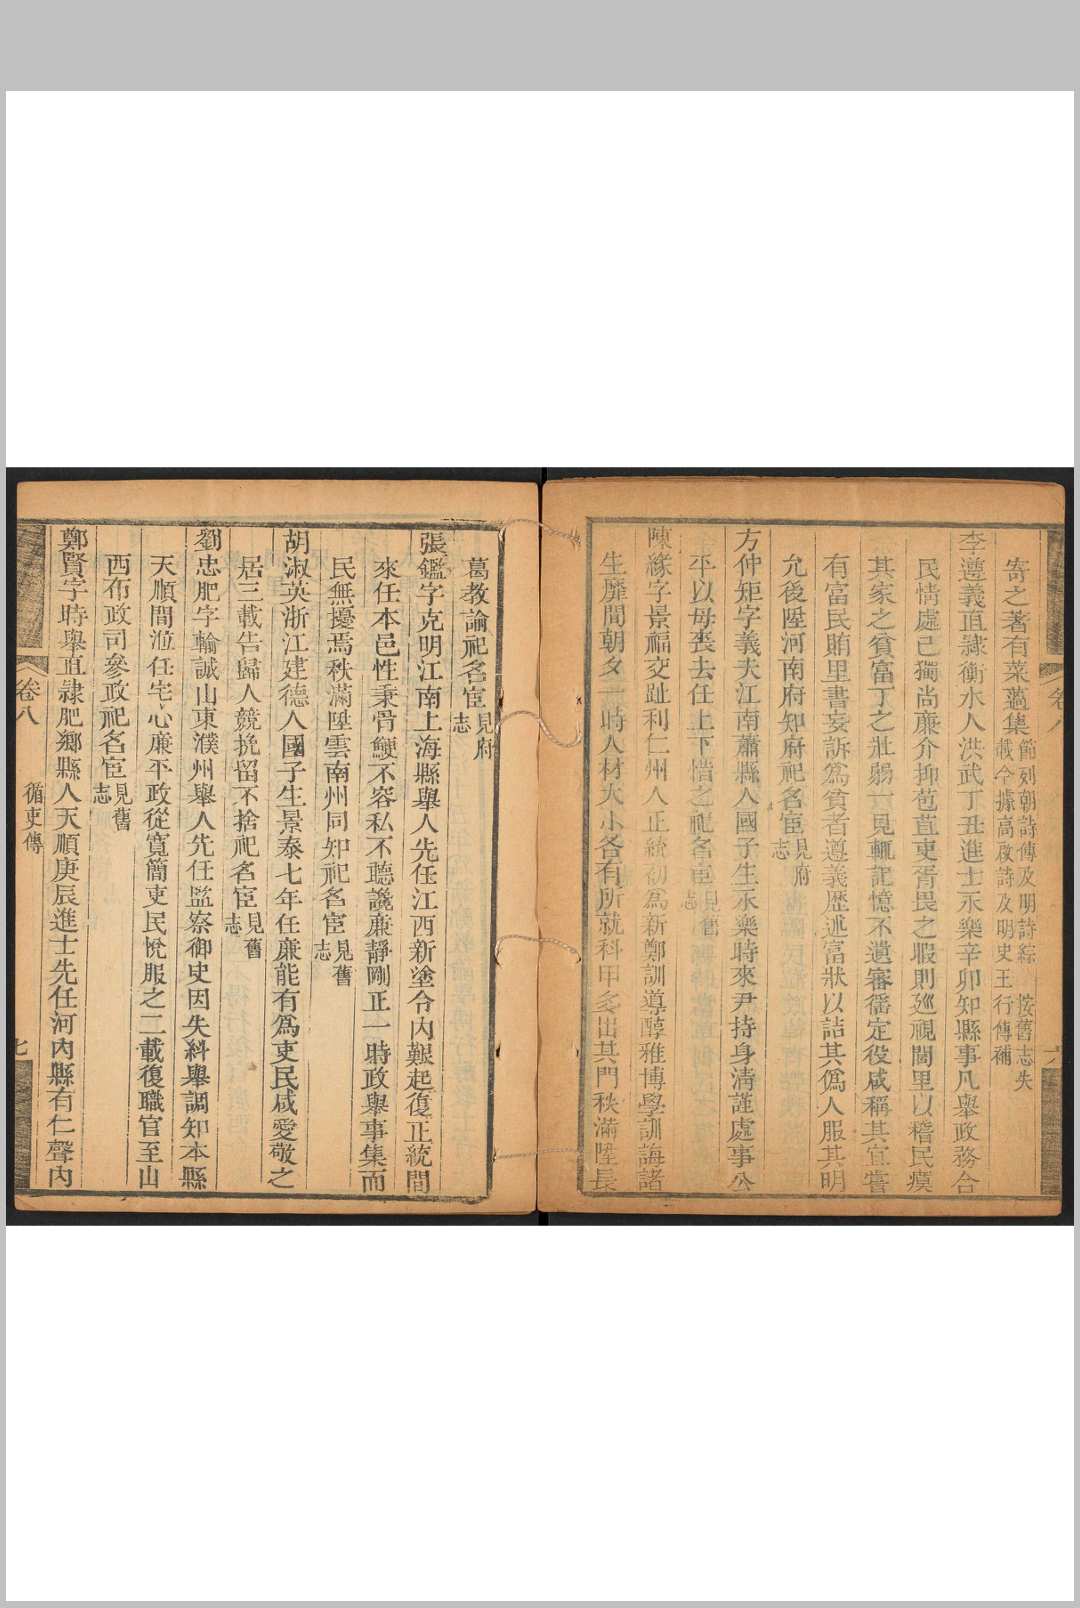 寄之著有菜薖集節刻朝詩傳及明詩綜 按舊志失
載今據高啟詩及明史王行傳補
李遵義直隸衡水人洪武丁丑進士永樂辛卯知縣事凡舉政務合
民情處己獨尚廉介抑苞苴吏胥畏之暇則廵視閭里以稽民瘼
其家之貧富丁之壯弱一見輒記憶不遺審徭定役咸稱其宜嘗
有富民賄里書妄訴爲貧者遵義歷述富狀以詰其僞人服其明
允後陞河南府知府祀名宦見府
志
方仲矩字義夫江南蕭縣人國子生永樂時來尹持身淸謹處事公
平以母喪去任上下惜之祀名宦見舊
志
陳緣字景福交趾利仁州人正統初爲新鄭訓導醇雅博學訓誨諸
生靡間朝夕一時人材大小各有所就科甲多出其門秩滿陞長
葛教諭祀名宦見府
志
張鑑字克明江南上海縣舉人先任江西新塗令内艱起復正統間
來任本邑性秉骨鯁不容私不聽讒廉靜剛正一時政舉事集而
民無擾焉秩滿陞雲南州同知祀名宦見舊
志
胡淑英浙江建德人國子生景泰七年任廉能有爲吏民咸愛敬之
居三載告歸人競挽留不捨祀名宦見舊
志
劉忠肥字輸誠山東濮州舉人先任監察御史因失糾舉調知本縣
天順間涖任宅心廉平政從寬簡吏民悅服之二載復職官至山
西布政司參政祀名宦見舊
志
鄭賢字時舉直隷肥鄉縣人天順庚辰進士先任河內縣有仁聲內
卷八 循吏傳 七